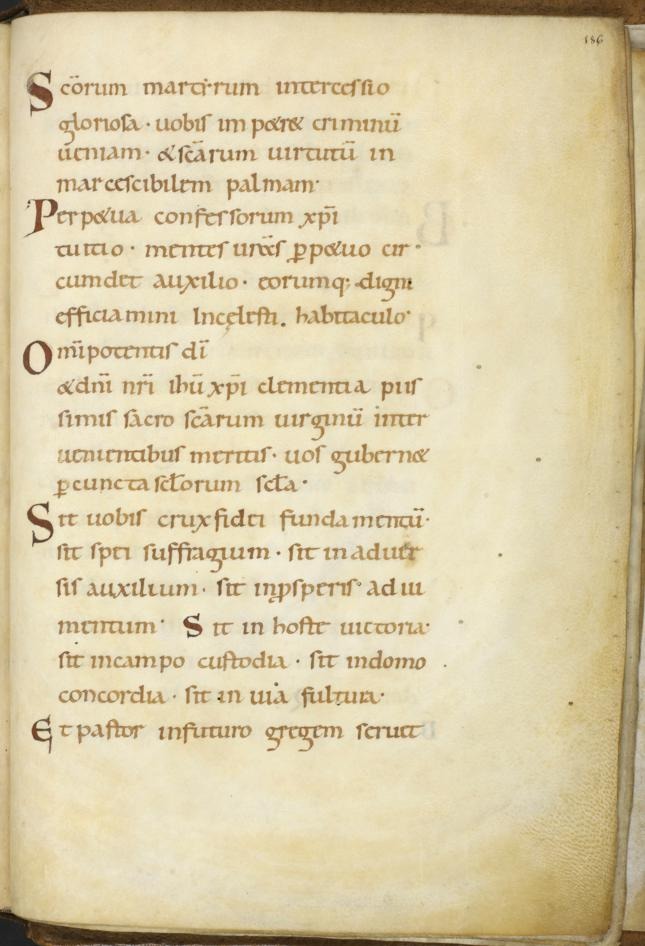 186
Scōrum martyrum intercessio
gloriosa · uobis impetret criminū
ueniam · & scārum uirtutū in
marcescibilem palmam ·
Perp&ua confessorum xp̄i
tuitio · mentes ur̄as ꝑp&uo cir
cumdet auxilio · eorumq; digni
efficiamini Incęlesti. habitaculo ·
Omīpotentis dī
& dn̄i nr̄i ihū xp̄i clementia piis
simis sacro scārum uirginū inter
uenientibus meritis · uos gubern&
ꝑ cuncta sc̄lorum sc̄la ·
Sit uobis crux fidei fundamentū ·
sit spei suffragium · sit in aduer
sis auxilium · sit inꝓsperis adiu
mentum · Sit in hoste uictoria ·
sit incampo custodia · sit indomo
concordia · sit in uia fultura ·
Et pastor infuturo gregem seruet